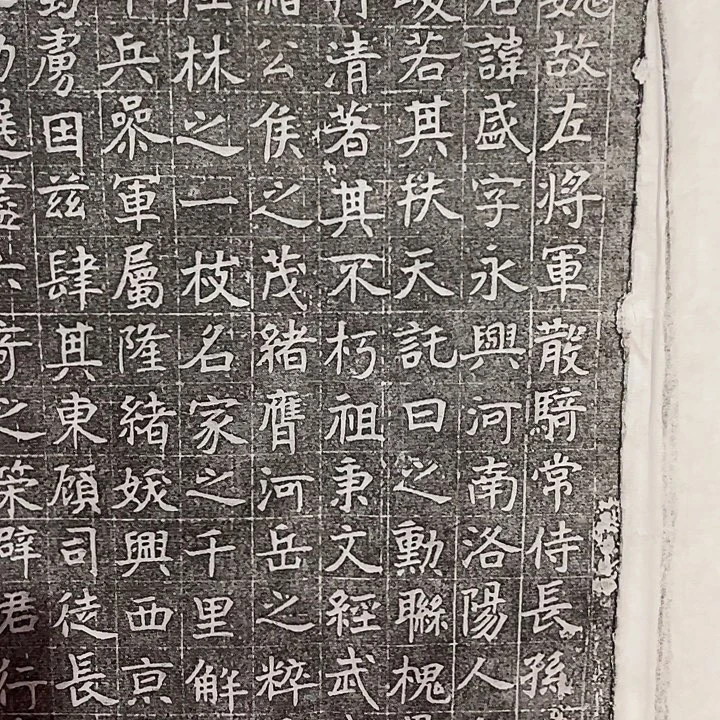 魏故左將軍散騎常侍長孫
君諱盛字永興河南洛陽人
峻若其秩天託日之勳聯槐
清著其不朽祖秉文經武
緒公侯之茂緒膺河岳之粹
林之一枝名家之千里解
兵參軍屬隆緒娥興西京
虜田茲肆其東顧司徒長
六奇之策辟君行